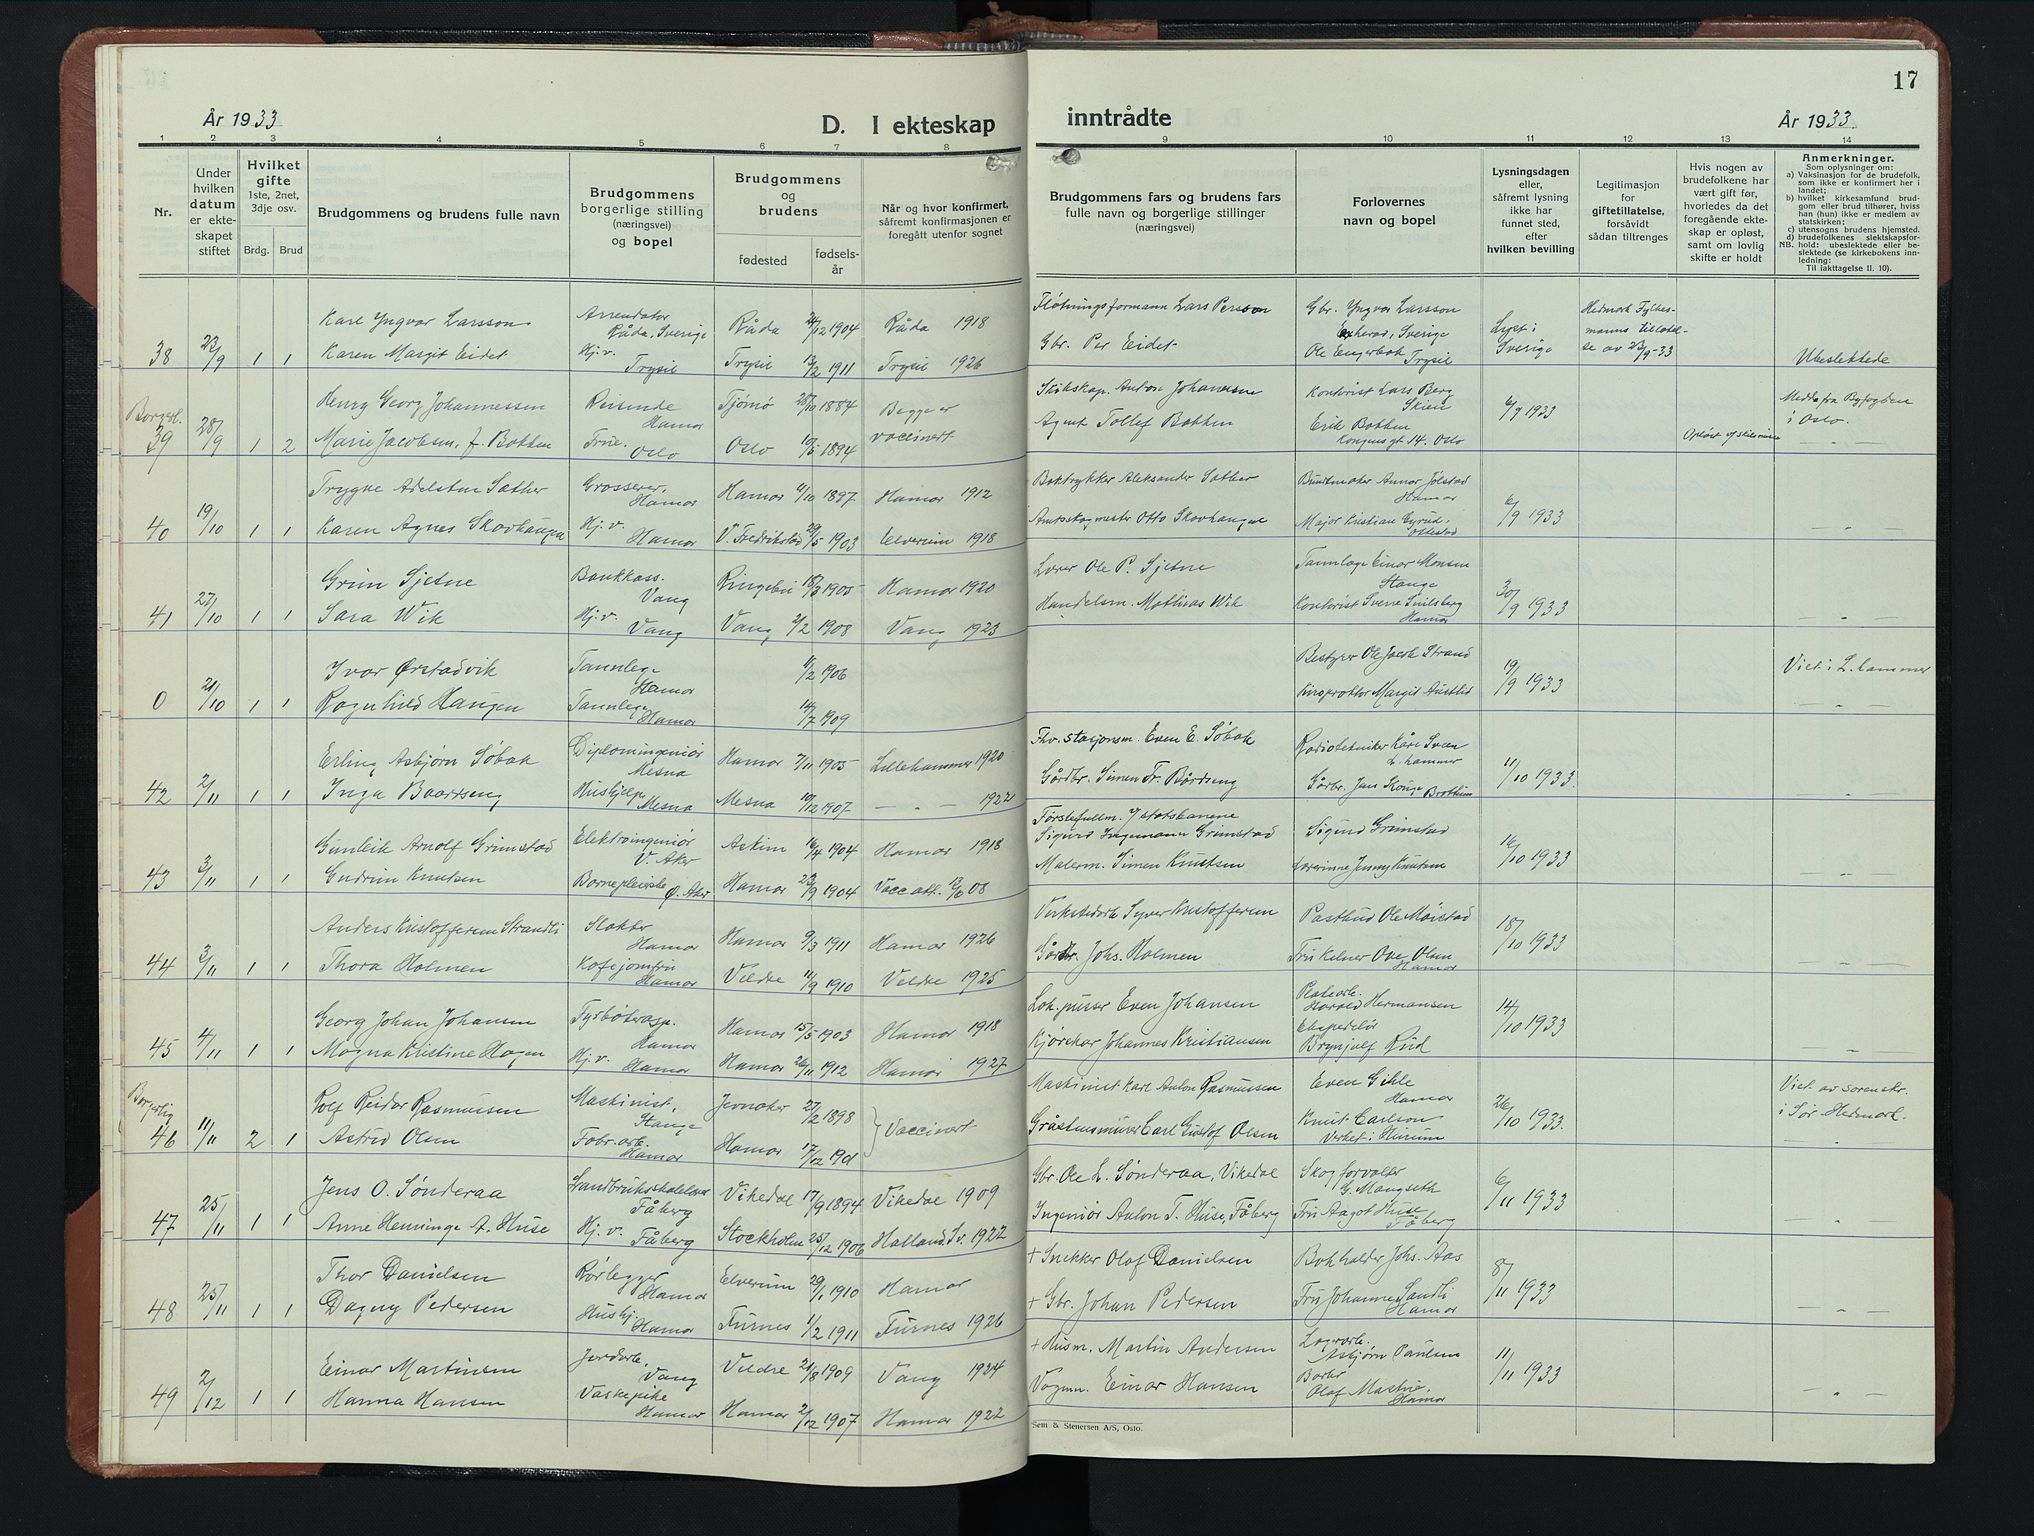 17
År 1933
D. I ekteskap
inntrådte
År 1933.
1 2 3 4 5 6 7 8 9 10 11 12 13 14
Nr.
Under
hvilken
datum
er ekte-
skapet
stiftet
Hvilket
gifte
1ste, 2net,
3dje osv.
Brdg. Brud
Brudgommens og brudens fulle navn
Brudgommens
borgerlige stilling
(næringsvei)
og bopel
Brudgommens
og
brudens
fødested
fødsels-
år
Når og hvor konfirmert,
såfremt konfirmasjonen er
foregått utenfor sognet
Brudgommens fars og brudens fars
fulle navn og borgerlige stillinger
(næringsvei)
Forlovernes
navn og bopel
Lysningsdagen
eller,
såfremt lysning
ikke har
funnet sted,
efter
hvilken bevilling
Legitimasjon
for
giftetillatelse,
forsåvidt
sådan tiltrenges
Hvis nogen av
brudefolkene har
vært gift før,
hvorledes da det
foregående ekte-
skap er opløst,
samt om lovlig
skifte er holdt
Anmerkninger.
Som oplysninger om:
a) Vaksinasjon for de brudefolk,
som ikke er konfirmert her i
landet;
b) hvilket kirkesamfund brud-
gom eller brud tilhører, hviss
han (hun) ikke er medlem av
statskirken;
c) utensogns brudens hjemsted.
d) brudefolkenes slektskapsfor-
NB. hold: ubeslektede eller be-
slektede (se kirkebokens inn-
ledning:
Til iakttagelse II. 10).
Karl Yngvar Larsson Arrendator Råda, Sverige Råda 24/12 1904 Råda 1918 Fløtningsformann Lars Persson Gbr. Yngvar Larsson
38 23/9 1 1 Karen Margit Eidet Hj.v. Trysil Trysil 13/2 1911 Trysil 1926 Gbr. Per Eidet Ole Engerbak Trysil Lyst i Sverige Hedmark Fylkesmanns tillatelse av 23/9-33 Ubeslektede
Borgerl. Henry Georg Johannessen Reisende Hamar Tjømø 28/10 1884 Begge er vaccinert Skibskap. Anton Johansen Kontorist Lars Berg Skien Medd. fra Byfogden i Oslo.
39 28/9 1 2 Marie Jacobsen, f. Bakken Frue. Oslo Oslo 10/5 1894 Agent Tollef Bakken Erik Bakken Kongensgt 14. Oslo 6/9 1933 Opløst v/skilsmisse - " -
Trygve Adelsten Sæther Grosserer, Hamar Hamar 4/10 1897 Hamar 1912 Boktrykker Aleksander Sæther Buntmaker Annar Jølstad Hamar
40 19/10 1 1 Karen Agnes Skovhaugen Hj.v. Hamar V. Fredrikstad 29/5 1903 Elverum 1918 Amtsskogmester Otto Skovhaugen Major Kristian Gyrud, Ottestad 6/9 1933 - " -
Grim Sjetne Bankkass. Vang Ringebu 18/3 1905 Hamar 1920 Lærer Ole P. Sjetne Tannlæge Einar Monsen Stange
41 27/10 1 1 Sara Wik Hj.v. Vang Vang 2/2 1908 Vang 1923 Handelsm. Mathias Wik Kontorist Sverre Snilsberg Hamar 30/9 1933 - " -
Ivar Ørstadvik Tannlege Hamar 11/2 1906 Bestyrer Ole Jacob Strand Viet i L.hammer
0 21/10 1 1 Ragnhild Haugen Tannlege Hamar 14/7 1909 Kiropraktor Margit Austlid 19/9 1933 - " -
Erling Asbjørn Søbak Diplomingeniør Mesna Hamar 7/11 1905 Lillehammer 1920 Fhv. stasjonsm. Even E. Søbak Radiotekniker Kåre Sveen L.hammer
42 2/11 1 1 Inga Baardseng Hushjelp Mesna Mesna 19/12 1907 - " - 1922 Gårdbr. Simen Fr. Bårdseng Gårbr. Jens Konge Brøttum 11/10 1933. - " -
Gunleik Arnolf Grimstad Elektroingeniør V. Aker Askim 16/4 1904 Hamar 1918 Førstefullm. v/ statsbanene Sigurd Ingemann Grimstad Sigurd Grimstad
43 3/11 1 1 Gudrun Knutsen Barnepleierske Ø. Aker Hamar 23/9 1904 Vacc.att. 13/6 08 Malerm. Simen Knutsen Lærerinne Jenny Knutsen 16/10 1933 - " -
Anders Kristoffersen Strandli Slakter Hamar Hamar 9/3 1911 Hamar 1926 Verkstedarb. Syver Kristoffersen Postbud Ole Moistad
44 3/11 1 1 Thora Holmen Kafejomfru Hamar Veldre 11/9 1910 Veldre 1925 Gårdbr. Johs. Holmen Fru Kelner Ove Olsen Hamar 18/10 1933 - " -
Georg Johan Johansen Fyrbøterasp. Hamar Hamar 15/5 1903 Hamar 1918 Lok.pusser Even Johansen Platearb. Harald Hermansen
45 4/11 1 1 Magna Kristine Hagen Hj.v. Hamar Hamar 26/11 1912 Hamar 1927 Kjørekar Johannes Kristiansen Ekspeditør Brynjulf Rud 14/10 1933 "
Borgerlig Rolf Reidar Rasmussen Maskinist, Stange Jevnaker 27/2 1898 Vaccinert Maskinist Karl Anton Rasmussen Even Gihle Hamar Viet av sorenskr. i Sør-Hedmark.
46 11/11 2 1 Astrid Olsen Fabr.arb. Hamar Hamar 17/12 1901 Gråstensmurer Carl Gustaf Olsen Knut Carlson Verket i Hurum 26/10 1933. "
Jens O. Sønderaa Landbruksskolelærer Fåberg Vikedal 17/9 1894 Vikedal 1909 Gbr. Ole L. Sønderaa, Vikedal Skogforvalter G. Mangseth
47 25/11 1 1 Anne Henninge A. Huse Hj.v. Fåberg Stockholm 25/12 1906 Halland. Sv. 1922 Ingeniør Anton T. Huse, Fåberg Fru Aagot Huse Fåberg 6/11 1933 - " -
Thor Danielsen Rørlegger Hamar Elverum 29/1 1910 Hamar + Snekker Olaf Danielsen Bokholder Johs. Aas
48 25/11 1 1 Dagny Pedersen Hushj. Hamar Furnes 11/2 1911 Furnes 1926 + Gbr. Johan Pedersen Fru Johanne Sandli Hamar 8/11 1933 - " -
Einar Martinsen Jordarb. Vang Veldre 21/8 1909 Vang 1924 + Husm. Martin Andersen Lagerarb. Asbjørn Paulsen
49 2/12 1 1 Hanna Hansen Vaskepike Hamar Hamar 2/12 1907 Hamar 1922 Vognm. Einar Hansen Olaf Hamar 11/11 1933 - " -
Sem & Stenersen A/S, Oslo.